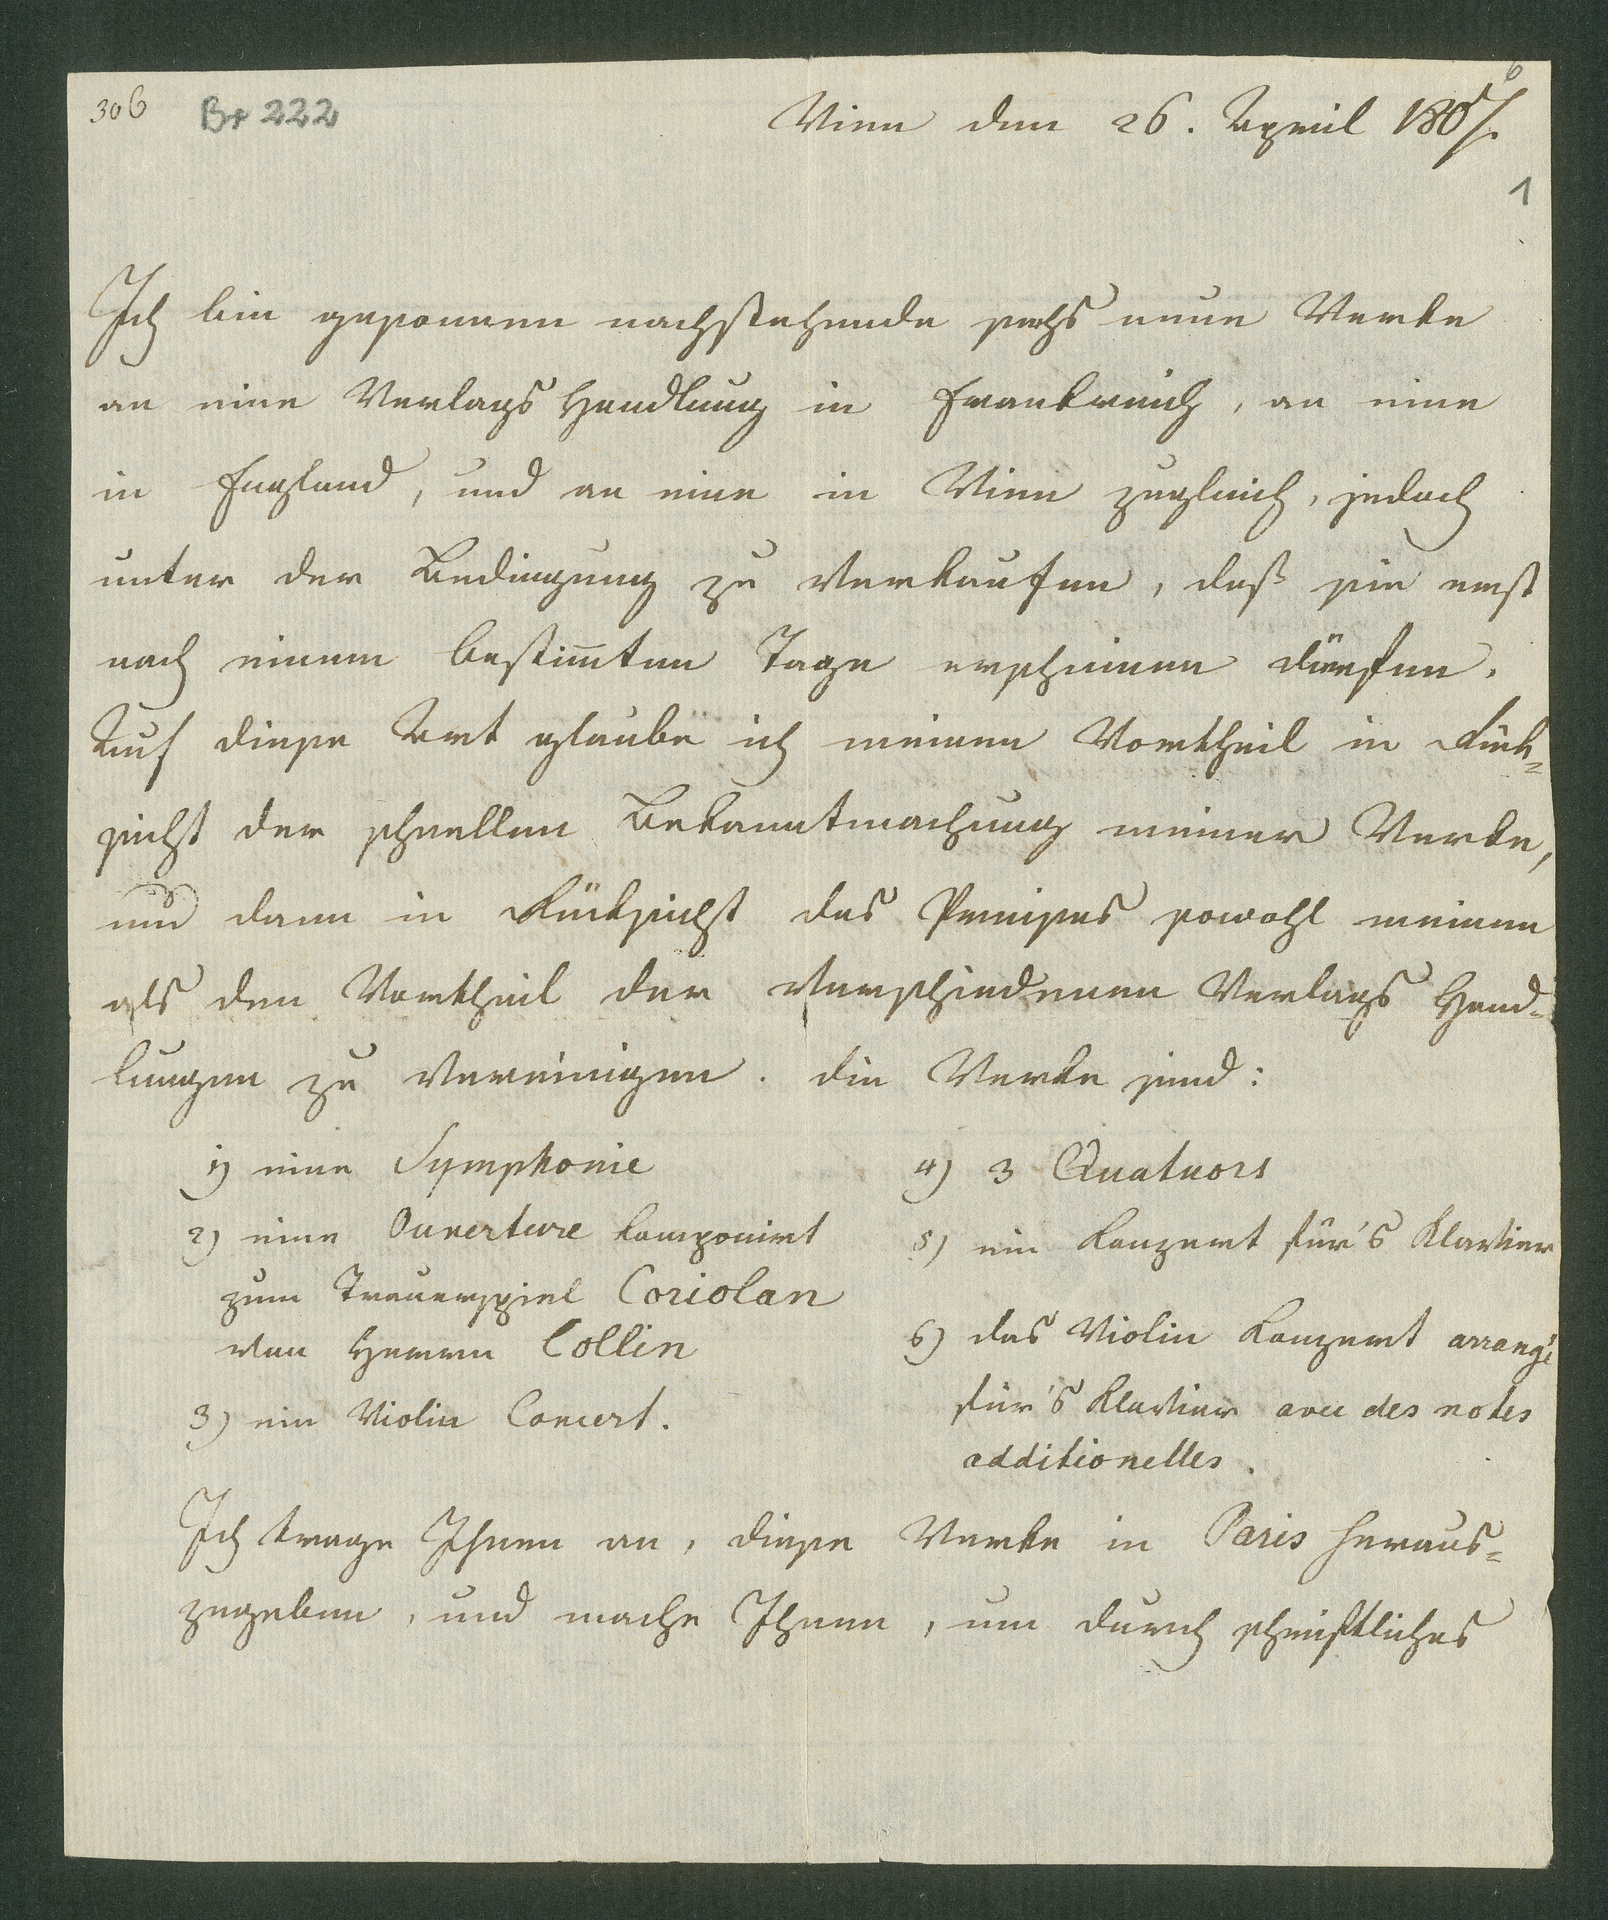 306 Br 222
6
Wien den 26. April 1807.
1
Ich bin gesonnen nachstehende sechs neue Werke
an eine Verlags Handlung in Frankreich, an eine
in England, und an eine in Wien zugleich, jedoch
unter der Bedingung zu verkaufen, daß sie erst
nach einem bestim̅ten Tage erscheinen dürfen.
Auf diese Art glaube ich meinen Vortheil in Rück=
sicht der schnellen Bekanntmachung meiner Werke,
und dann in Rücksicht des Preises sowohl meinen
als den Vortheil der verschiedenen Verlags Hand=
lungen zu vereinigen. die Werke sind:
1) eine Symphonie
2) eine Ouverture komponirt
zum Trauerspiel Coriolan
von Herrn Collin
3) ein Violin Concert.
4) 3 Quatuors
5) ein Konzert für's Klavier
6) das Violin Konzert arrangé
für's Klavier avec des notes
additionelles.
Ich trage Ihnen an, diese Werke in Paris heraus=
zugeben, und mache Ihnen, um durch schriftliches